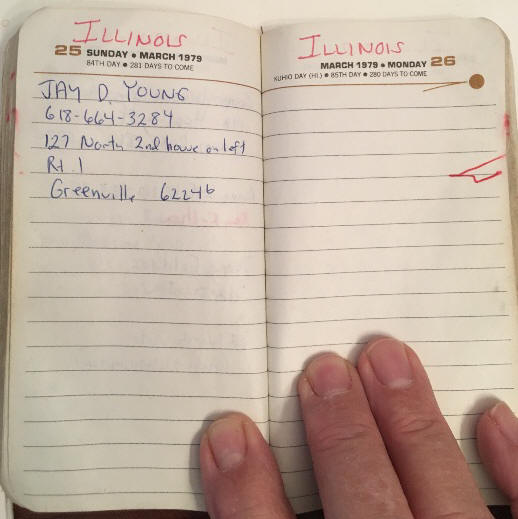 ILLINOIS
25 SUNDAY • MARCH 1979
84TH DAY • 281 DAYS TO COME
JAY D. YOUNG
618-664-3284
127 North 2nd house on left
Rt. 1
Greenville 62246
ILLINOIS
MARCH 1979 • MONDAY 26
KUHIO DAY (HI.) • 85TH DAY • 280 DAYS TO COME